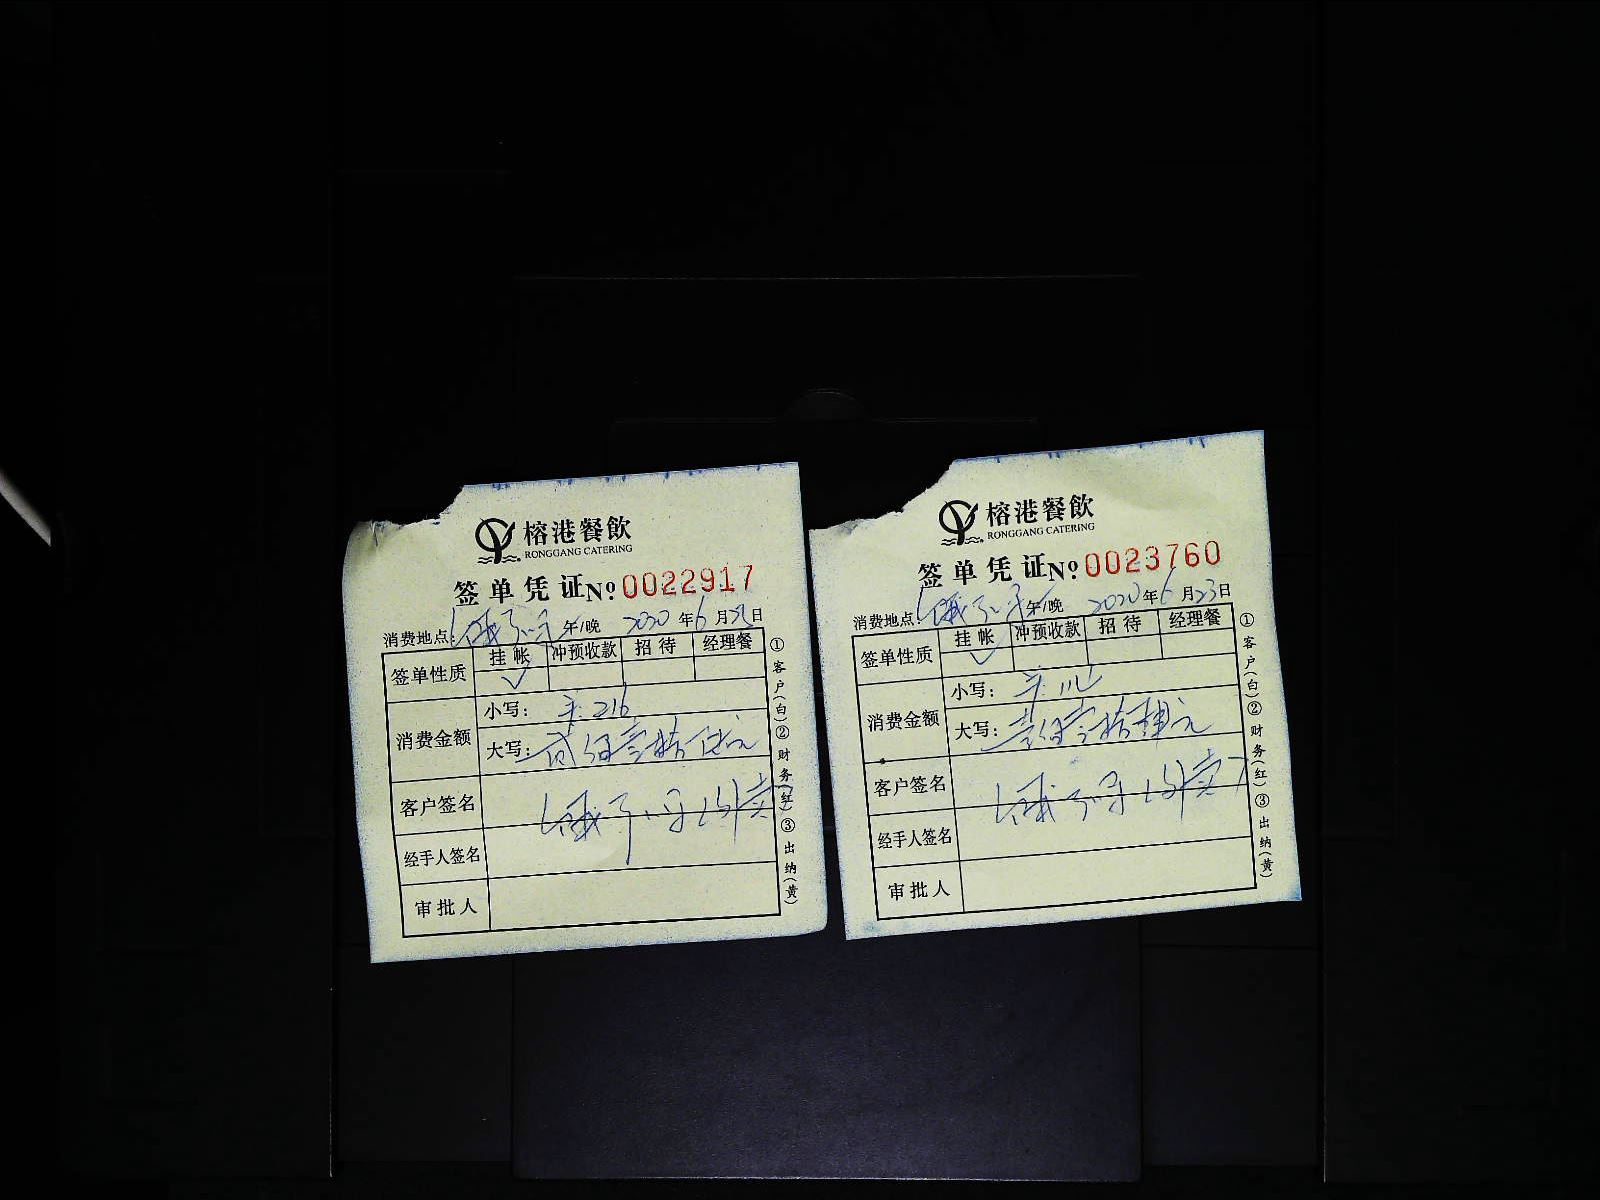 榕港餐飲
RONGGANG CATERING
签单凭证 No 0022917
消费地点: 饿了么 午/晚 2020 年 6 月 22 日
签单性质 挂帐 冲预收款 招待 经理餐
✓
消费金额 小写: 216
大写: 贰佰壹拾 元
客户签名 饿了么外卖
经手人签名
审批人
①客户(白)②财务(红)③出纳(黄)
榕港餐飲
RONGGANG CATERING
签单凭证 No 0023760
消费地点: 饿了么 午/晚 2020 年 6 月 23 日
签单性质 挂帐 冲预收款 招待 经理餐
✓
消费金额 小写:
大写: 壹佰壹拾 元
客户签名 饿了么外卖
经手人签名
审批人
①客户(白)②财务(红)③出纳(黄)